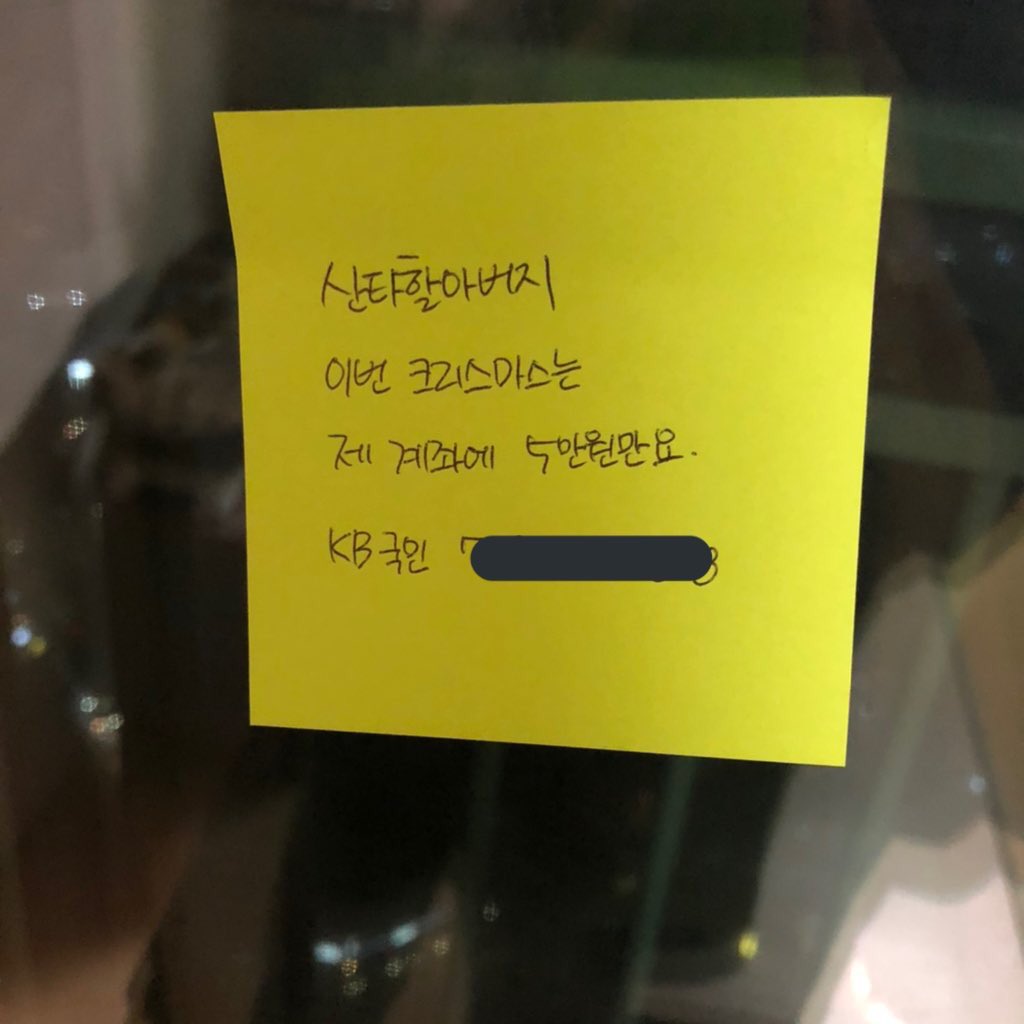 산타할아버지
이번 크리스마스는
제 계좌에 5만원만요.
KB국민